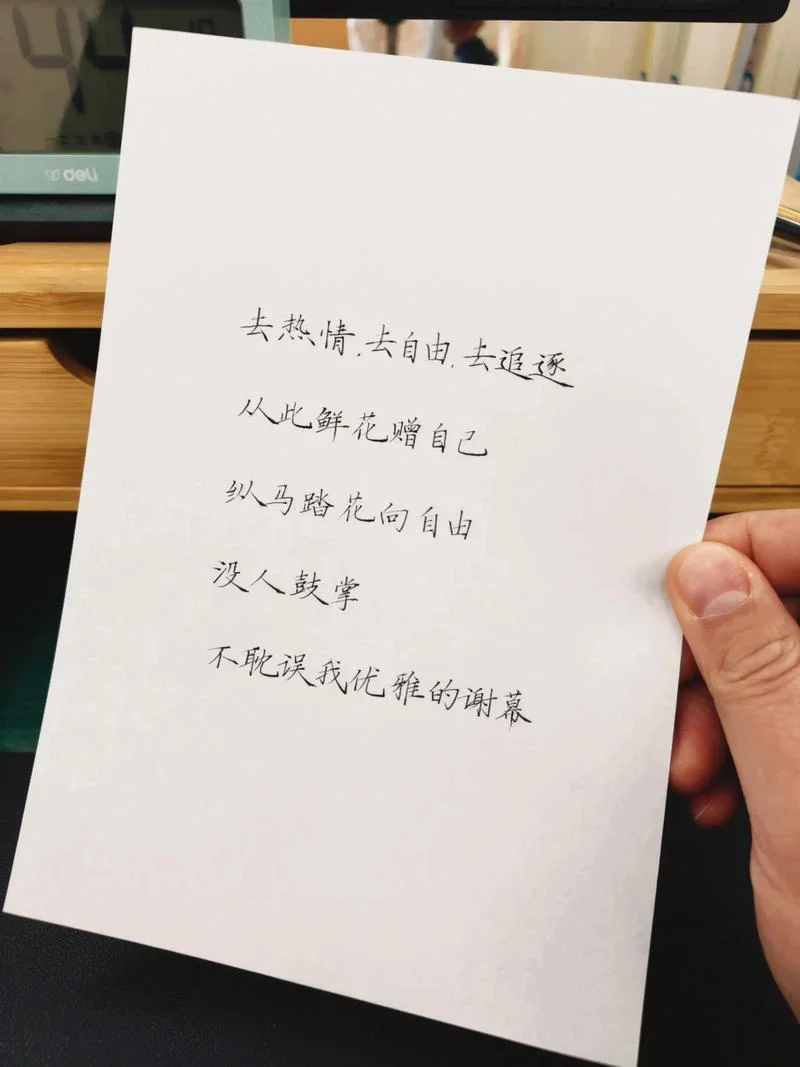 deli
去热情.去自由.去追逐
从此鲜花赠自己
纵马踏花向自由
没人鼓掌
不耽误我优雅的谢幕